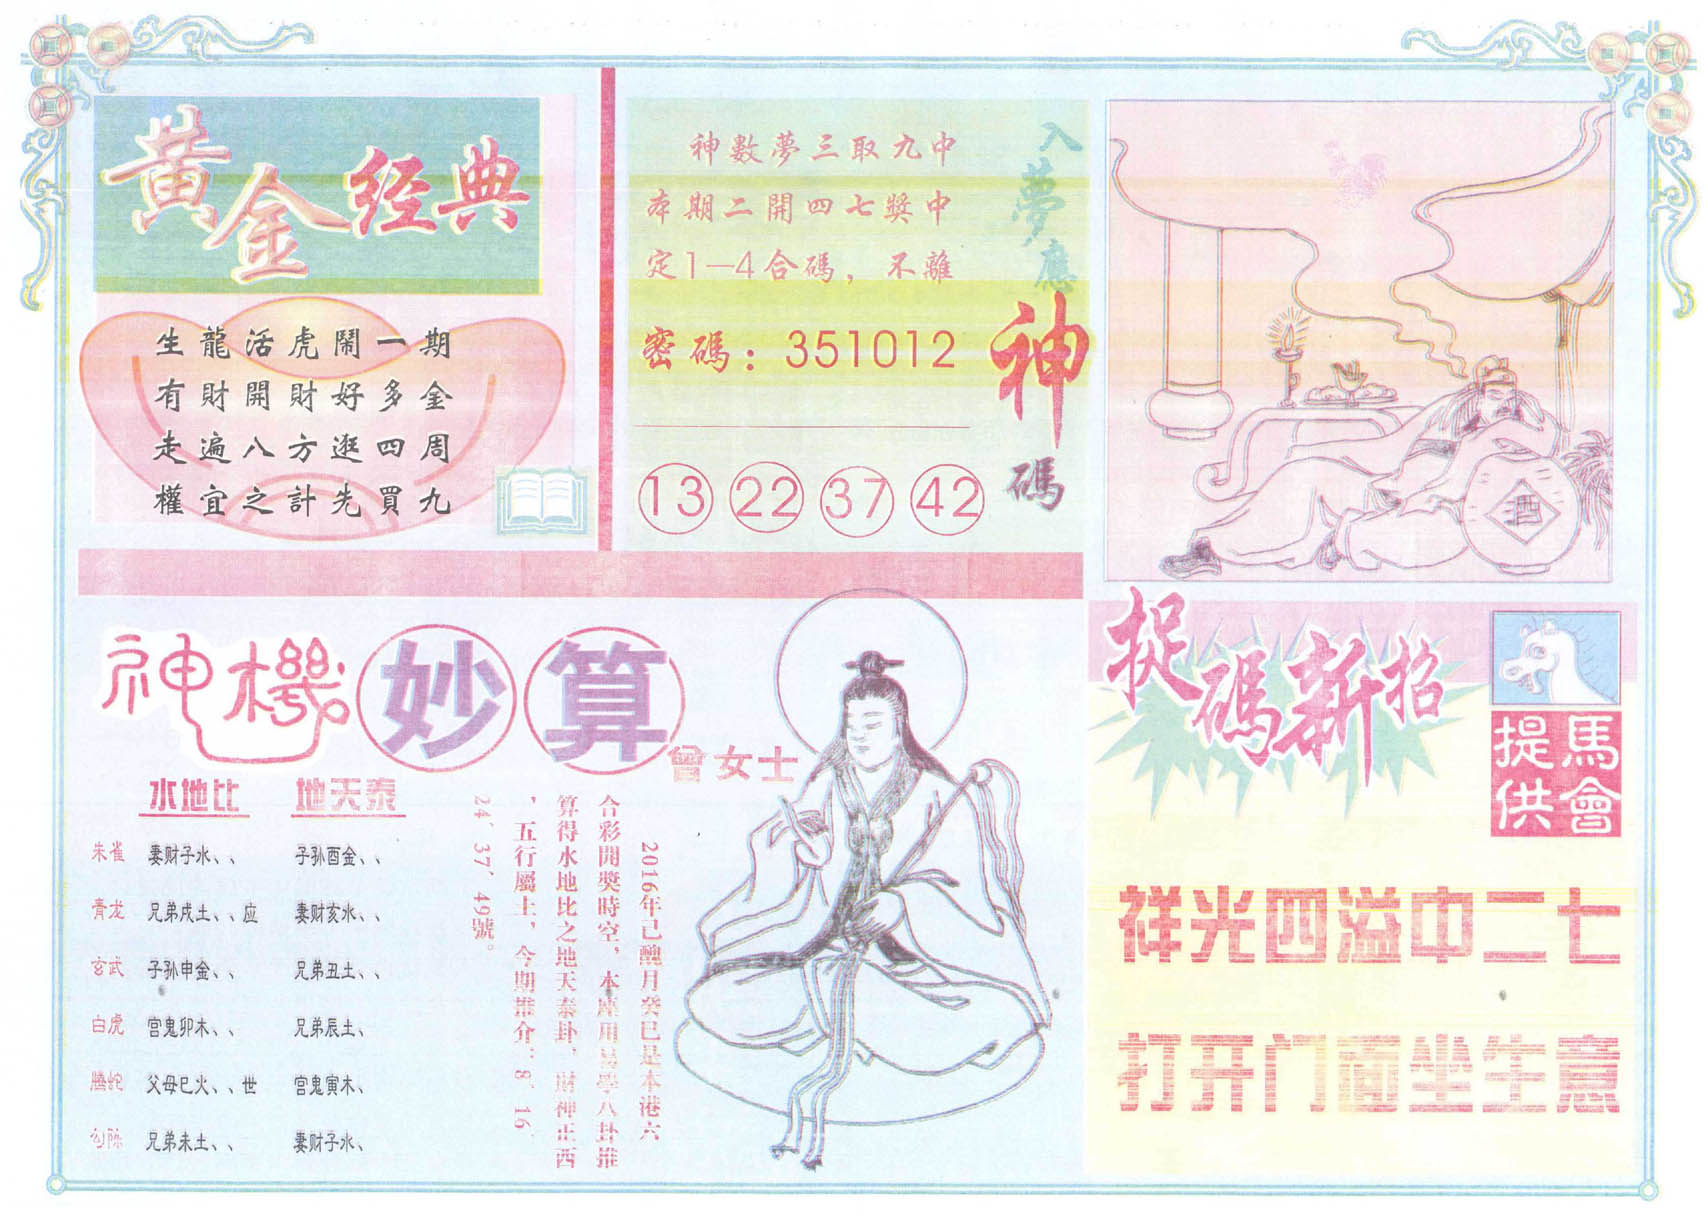 黄金经典
生龍活虎鬧一期
有財開財好多金
走遍八方逛四周
權宜之計先買九
神數夢三取九中
本期二開四七獎中
定1—4合碼，不離
密碼：351012
13 22 37 42
入夢應神碼
酒
神機妙算
曾女士
水地比 地天泰
朱雀 妻财子水、、 子孙酉金、、
青龙 兄弟戌土、、应 妻财亥水、、
玄武 子孙申金、、 兄弟丑土、、
白虎 官鬼卯木、、 兄弟辰土、
腾蛇 父母巳火、、世 官鬼寅木、
勾陈 兄弟未土、、 妻财子水、
2016年己醜月癸巳是本港六
合彩開獎時空，本座用易學八卦推
算得水地比之地天泰卦，財神正西
，五行屬土，今期推介：8、16、
24、37、49號。
捉碼新招
馬會
提供
祥光四溢中二七
打开门面坐生意